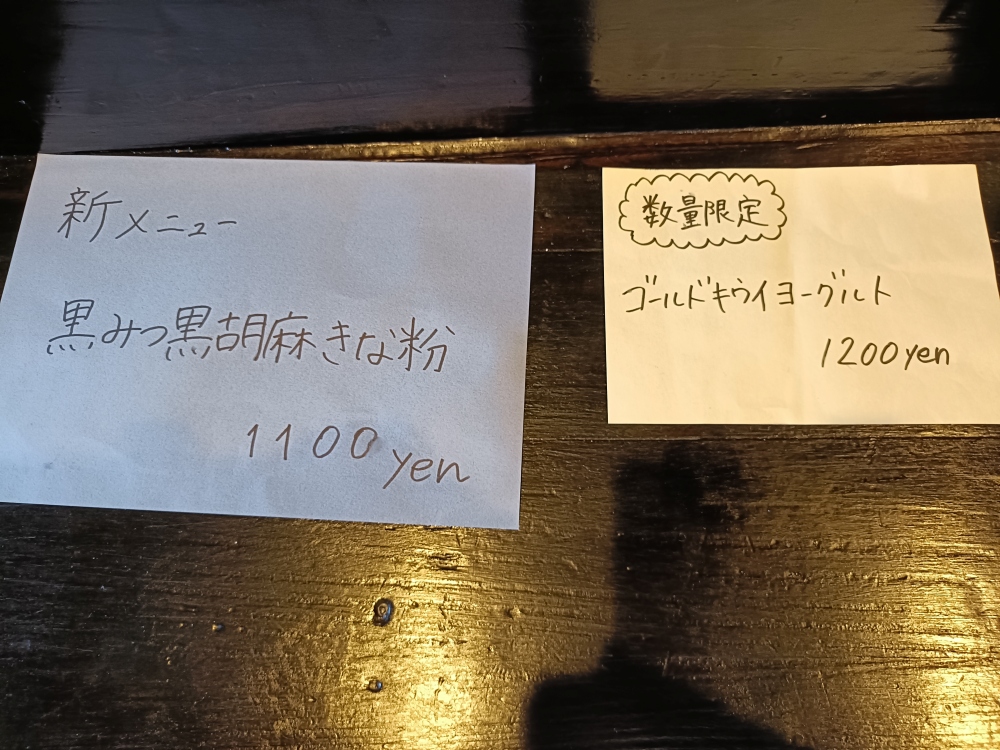 新メニュー
黒みつ黒胡麻きな粉
1100yen
数量限定
ゴールドキウイヨーグルト
1200yen